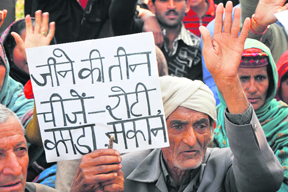 जीने की तीन
चीजें - रोटी
कपड़ा मकान